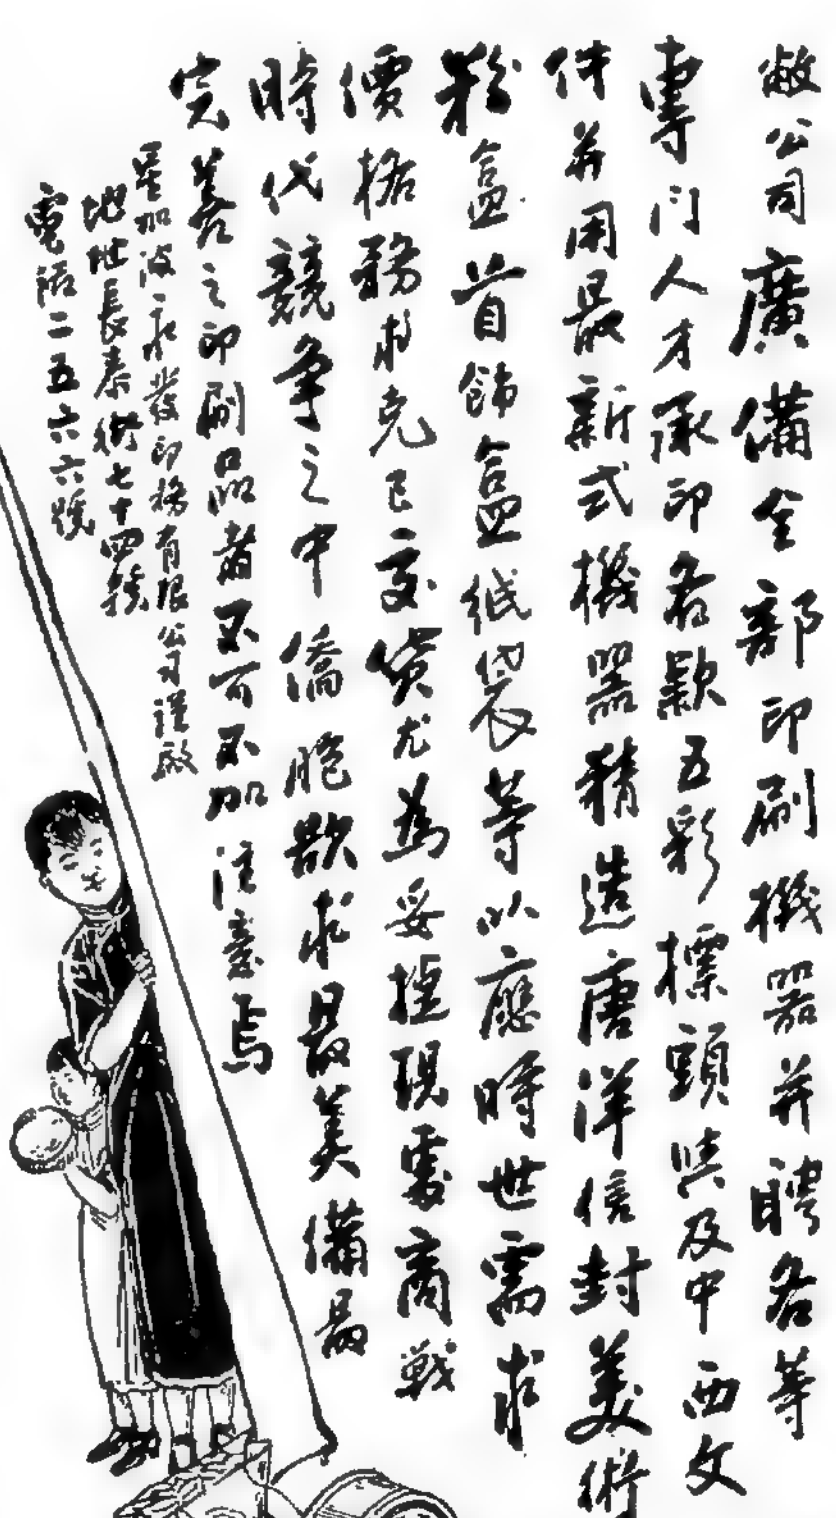 敝公司廣備全部印刷機器并聘各等
專門人才承印各款五彩標頭與及中西文
件并用最新式機器精造唐洋信封美術
粉盒首飾盒紙袋等以應時世需求
價格務求克己交貨尤為妥捷現處商戰
時代競争之中僑胞欲求最美備最
完善之印刷品者不可不加注意焉
星加波永發印務有限公司謹啟
地址長泰街七十四號
電話二五六六號